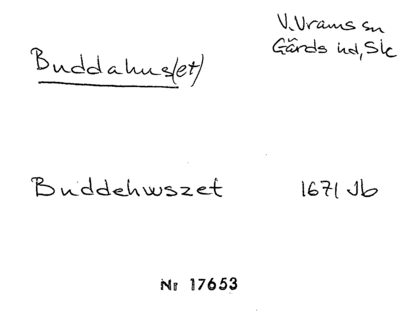 V. Vrams sn
Gärds hd, Sk
Buddahus(et)
Buddehwszet 1671 Jb
Nr 17653